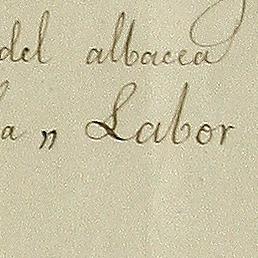 del albacea
a „ Labor